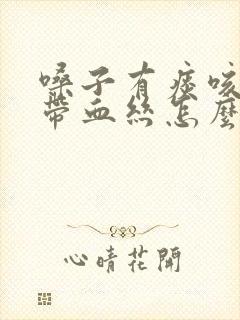 嗓子有痰咳
帶血絲怎麼
心晴花開